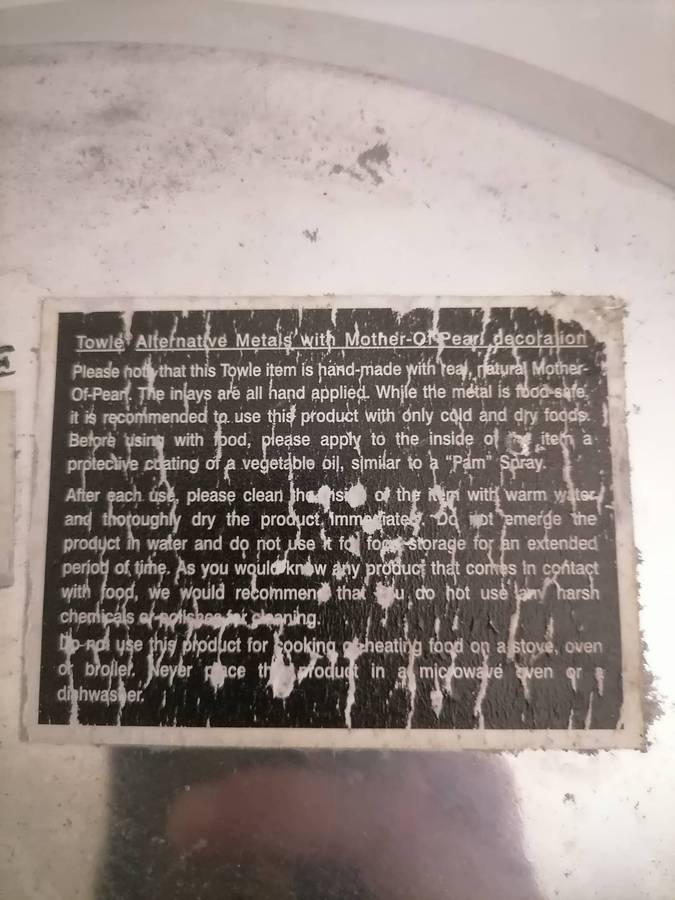 Towle Alternative Metals with Mother-Of-Pearl decoration
Please note that this Towle item is hand-made with real, natural Mother-
Of-Pearl. The inlays are all hand applied. While the metal is food-safe,
it is recommended to use this product with only cold and dry foods.
Before using with food, please apply to the inside of the item a
protective coating of a vegetable oil, similar to a "Pam" Spray.
After each use, please clean the inside of the item with warm water
and thoroughly dry the product immediately. Do not emerge the
product in water and do not use it for food storage for an extended
period of time. As you would know any product that comes in contact
with food, we would recommend that you do not use any harsh
chemicals or polishes for cleaning.
Do not use this product for cooking or heating food on a stove, oven
or broiler. Never place the product in a microwave oven or a
dishwasher.